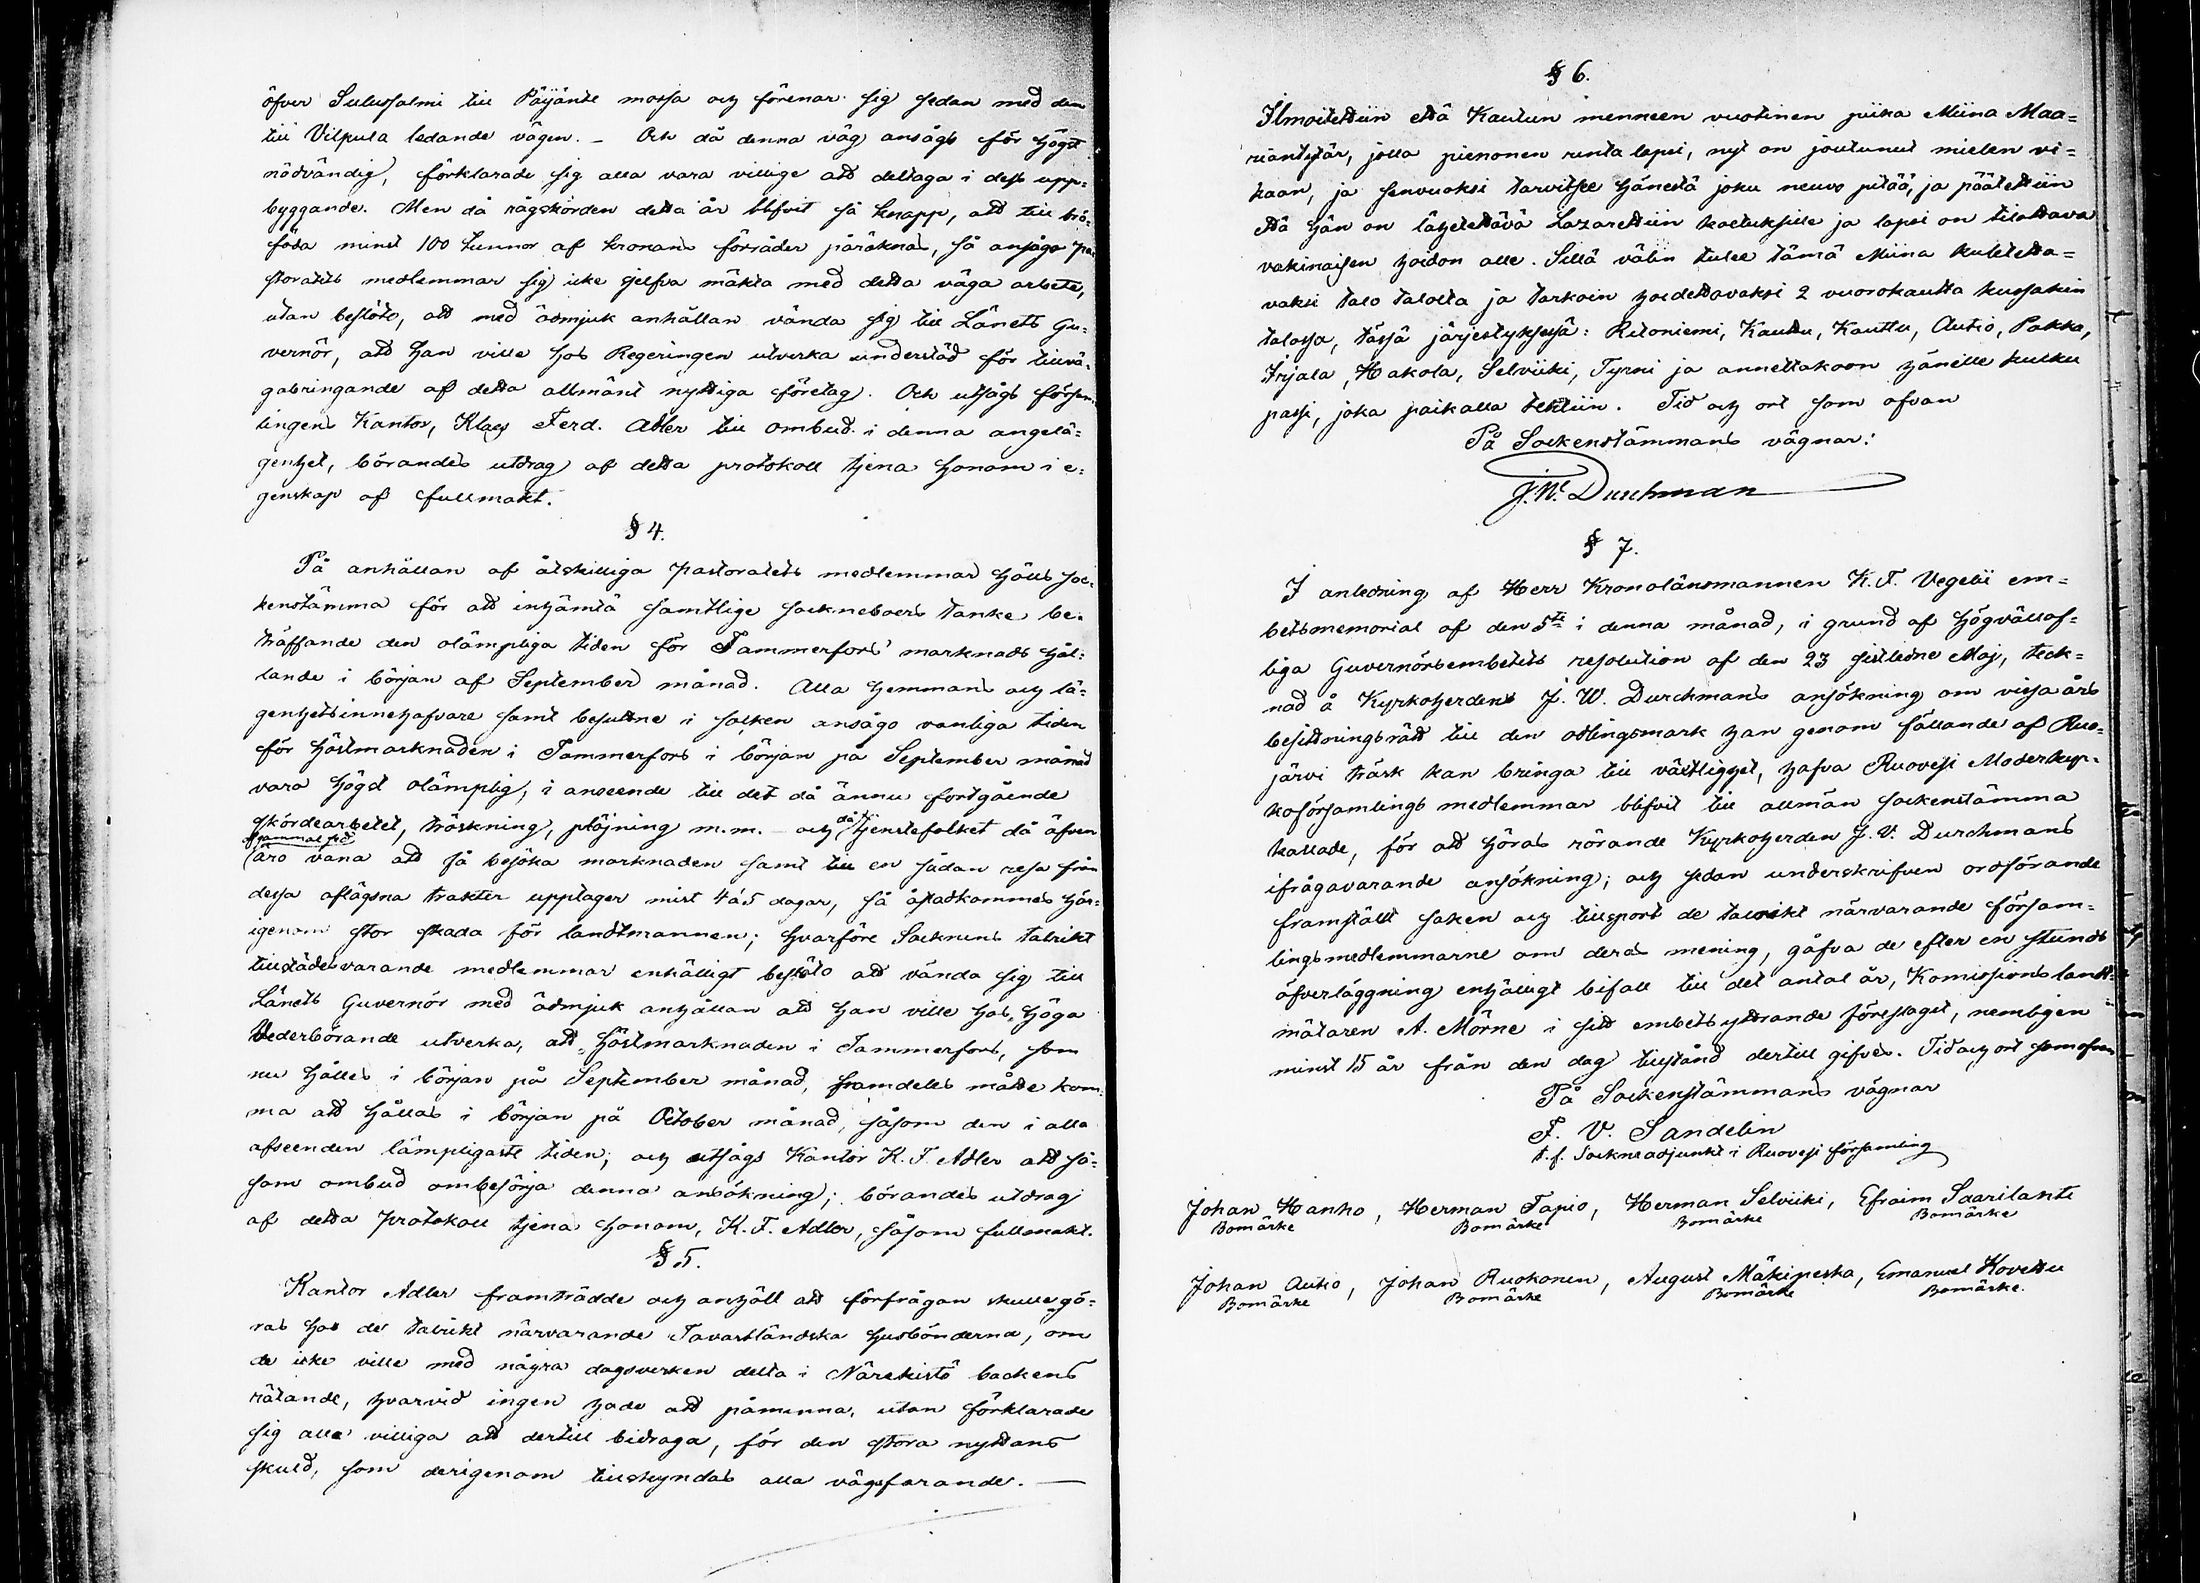 öfver Sulussalmi till Päyände mossa och förenar sig sedan med den
till Vilpula ledande vägen. – Och då denna väg ansågs för högst
nödvändig, förklarade sig alla vara villige att deltaga i dess upp=
byggande. Men då rågskörden detta år blifvit så knapp, att till brö=
föda minst 100 tunnor af kronans förråder påräknas, så ansågo pa=
storatets medlemmar sig icke sjelfva mäkta med detta väga arbete,
utan beslöto, att med ödmjuk anhållan vända sig till Länets Gu=
vernör, att han ville hos Regeringen utverka understöd för tillvä=
gabringande af detta allmänt nyttiga företag. Och utsågs försam=
lingens Kantor, Klas Ferd. Adler till ombud i denna angelä=
genhet, börandes utdrag af detta protokoll tjena honom i e=
genskap af fullmakt.
§ 4.
På anhållan af åtskilliga pastoratets medlemmar hölls soc=
kenstämma för att inhämta samtlige sockneboers tanke be=
träffande den olämpliga tiden för Tammerfors' marknads hål=
lande i början af September månad. Alla hemmans och lä=
genhetsinnehafvare samt besuttne i socken ansågo vanliga tiden
för höstmarknaden i Tammerfors i början på September månad
vara högst olämplig, i anseende till det då ännu fortgående
skördearbetet, tröskning, plöjning m.m. och då tjenstefolket då äfven
af gammal sed
äro vana att få besöka marknaden samt till en sådan resa från
dessa aflägsna trakter upptager minst 4 á 5 dagar, så åstadkommes här=
igenom stor skada för landtmannen; hvarföre Socknens talrikt
tillstädesvarande medlemmar enhälligt beslöto att vända sig till
Länets Guvernör med ödmjuk anhållan att han ville hos Höga
Vederbörande utverka, att höstmarknaden i Tammerfors, som
nu hålles i början på September månad, framdeles måtte kom=
ma att hållas i början på October månad, såsom den i alla
afseenden lämpligaste tiden; och utsågs Kantor K. F. Adler att så=
som ombud ombesörja denna ansökning; börandes utdrag
af detta protokoll tjena honom, K. F. Adler, såsom fullmakt.
§ 5.
Kantor Adler framträdde och anhöll att förfrågan skulle gö=
ras hos de talrikt närvarande Tavastländska husbönderna, om
de icke ville med några dagsverken delta i Närekistö backens
rätande, hvarvid ingen hade att påminna, utan förklarade
sig alla villiga att dertill bidraga, för den stora nyttans
skuld, som derigenom tillskyndas alla vägsfarande. —
§ 6.
Ilmoitettiin että Kautun menneen vuotinen piika Miina Maa=
riantytär, jolla pienonen rinta lapsi, nyt on joutunut mielen vi=
kaan, ja senvuoksi tarvitsee hänestä joku neuvo pitää, ja päätettiin
että hän on lähetettävä Lazarettiin koetuksille ja lapsi on tilattava
vakinaisen hoidon alle. Sillä välin tulee tämä Miina kuletetta=
vaksi talo talolta ja tarkoin hoidettavaksi 2 vuorokautta kussakin
talossa, tässä järjestyksessä: Ritoniemi, Kauttu, Kauttu, Autio, Pakka,
Irjala, Hakola, Selviiki, Tyrni ja annettakoon hänelle kulku
passi, joka paikalla tehtiin. Tid och ort som ofvan
På Sockenstämmans vägnar:
J. W. Durchman
§ 7.
I anledning af Herr Kronolänsmannen K. F. Vegelii em=
betsmemorial af den 5te i denna månad, i grund af högvällof=
liga Guvernörsembetets resolution af den 23 sistledne Maj, teck=
nad å Kyrkoherdens J. W. Durchmans ansökning om vissa års
besittningsrätt till den odlingsmark han genom fällande af Ruo=
järvi träsk kan bringa till växtlighet, hafva Ruovesi Moderkyr=
koförsamlings medlemmar blifvit till allmän sockenstämma
kallade, för att höras rörande Kyrkoherden J. V. Durchmans
ifrågavarande ansökning; och sedan underskrifven ordförande
framställt saken och tillsport de talrikt närvarande försam=
lingsmedlemmarne om deras mening, gåfva de efter en stunds
öfverläggning enhälligt bifall till det antal år, Komissionslandt=
mätaren A. Mörne i sitt embetsyttrande föreslagit, nemligen
minst 15 år från den dag tillstånd dertill gifves. Tid och ort som ofvan
På Sockenstämmans vägnar
F. V. Sandelin
t. f. Socknedjunkt i Ruovesi församling
Johan Hanho, Herman Tapio, Herman Selviiki, Efraim Saarilanti
Bomärke Bomärke Bomärke Bomärke
Johan Autio, Johan Ruokonen, August Mäkipeska, Emanuel Kovettu
Bomärke Bomärke Bomärke Bomärke.